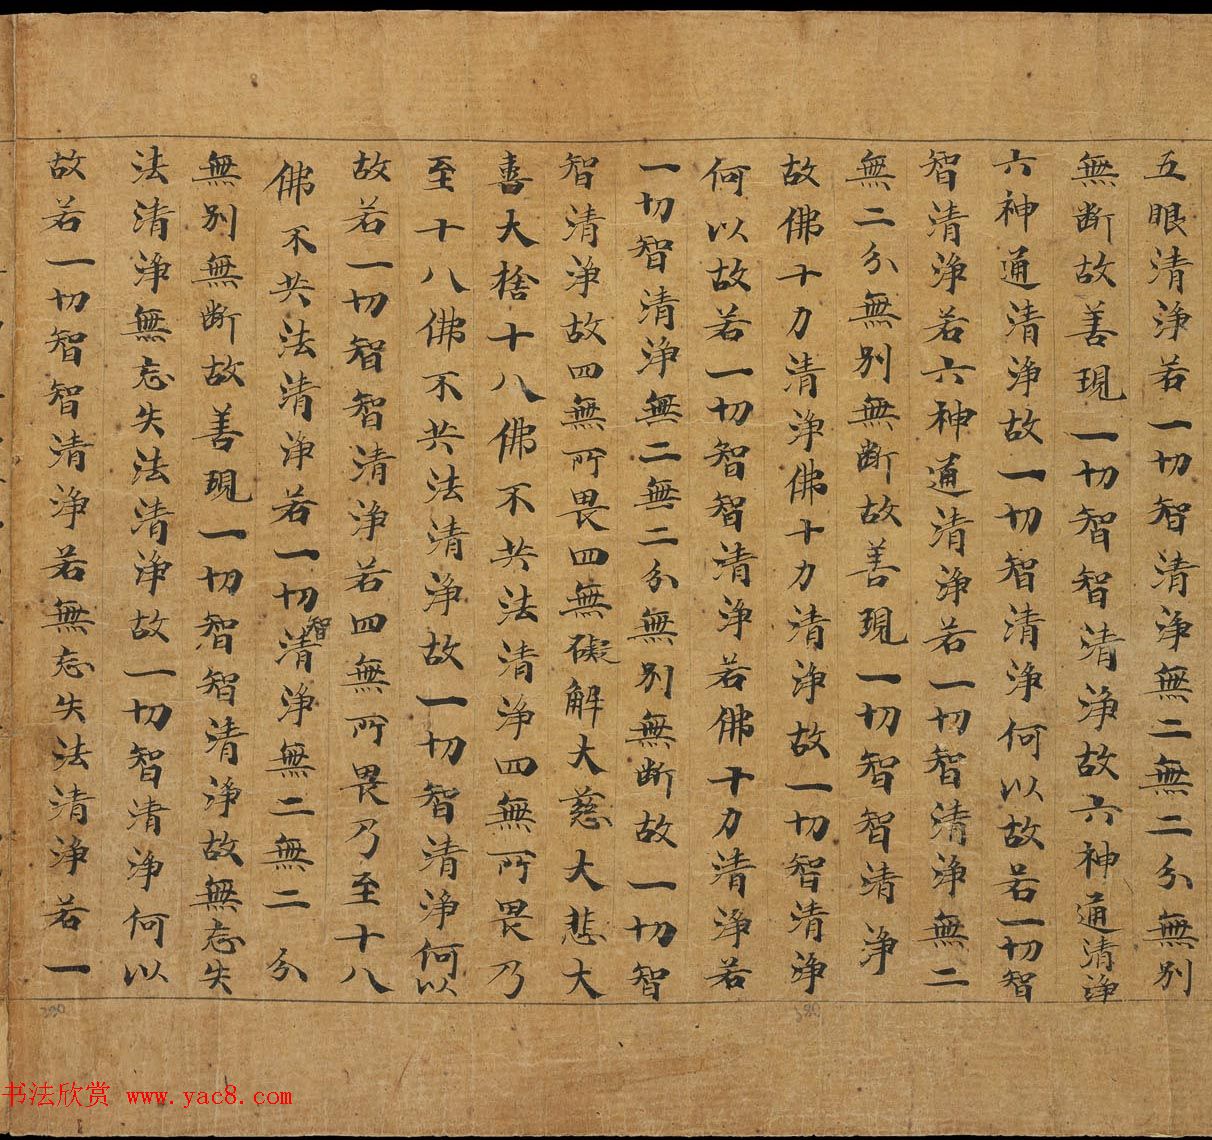 五眼清淨若一切智清淨無二無二分無別
無斷故善現一切智智清淨故六神通清淨
六神通清淨故一切智清淨何以故若一切智
智清淨若六神通清淨若一切智清淨無二
無二分無別無斷故善現一切智智清淨
故佛十力清淨佛十力清淨故一切智清淨
何以故若一切智智清淨若佛十力清淨若
一切智清淨無二無二分無別無斷故一切智
智清淨故四無所畏四無礙解大慈大悲大
喜大捨十八佛不共法清淨四無所畏乃
至十八佛不共法清淨故一切智清淨何以
故若一切智智清淨若四無所畏乃至十八
佛不共法清淨若一切智清淨無二無二分
無別無斷故善現一切智智清淨故無忘失
法清淨無忘失法清淨故一切智清淨何以
故若一切智智清淨若無忘失法清淨若一
书法欣赏 www.yac8.com